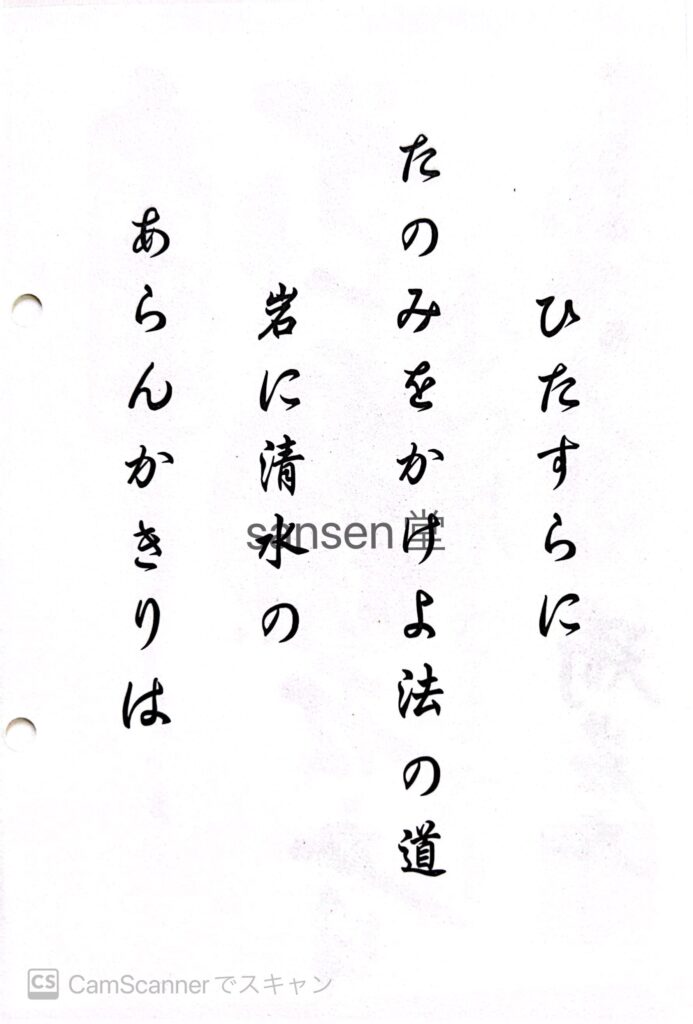 ひたすらに
たのみをかけよ法の道
岩に清水の
あらんかきりは
sansen堂
CS CamScannerでスキャン